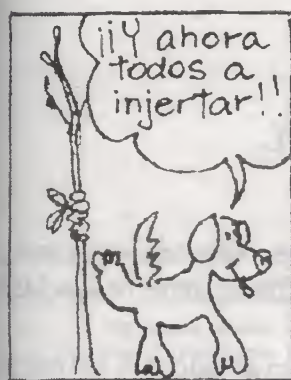 ¡¡Y ahora
todos a
injertar!!